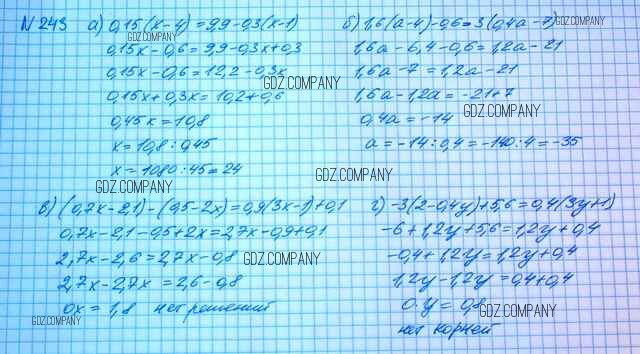 N 243 а) 0,15(x-4) = 9,9-0,3(x-1)
0,15x-0,6 = 9,9-0,3x+0,3
0,15x-0,6 = 12,2-0,3x
0,15x+0,3x = 10,2+0,6
0,45x = 10,8
x = 10,8 : 0,45
x = 1080 : 45 = 24
б) 1,6(a-4)-0,6 = 3(0,4a-7)
1,6a-6,4-0,6 = 1,2a-21
1,6a-7 = 1,2a-21
1,6a-1,2a = -21+7
0,4a = -14
a = -14 : 0,4 = -140 : 4 = -35
в) (0,7x-2,1)-(0,5-2x) = 0,9(3x-1)+0,1
0,7x-2,1-0,5+2x = 2,7x-0,9+0,1
2,7x-2,6 = 2,7x-0,8
2,7x-2,7x = 2,6-0,8
0x = 1,8 нет решений
г) -3(2-0,4y)+5,6 = 0,4(3y+1)
-6+1,2y+5,6 = 1,2y+0,4
-0,4+1,2y = 1,2y+0,4
1,2y-1,2y = 0,4+0,4
0·y = 0,8
нет корней
GDZ.COMPANY
GDZ.COMPANY
GDZ.COMPANY
GDZ.COMPANY
GDZ.COMPANY
GDZ.COMPANY
GDZ.COMPANY
GDZ.COMPANY
GDZ.COMPANY